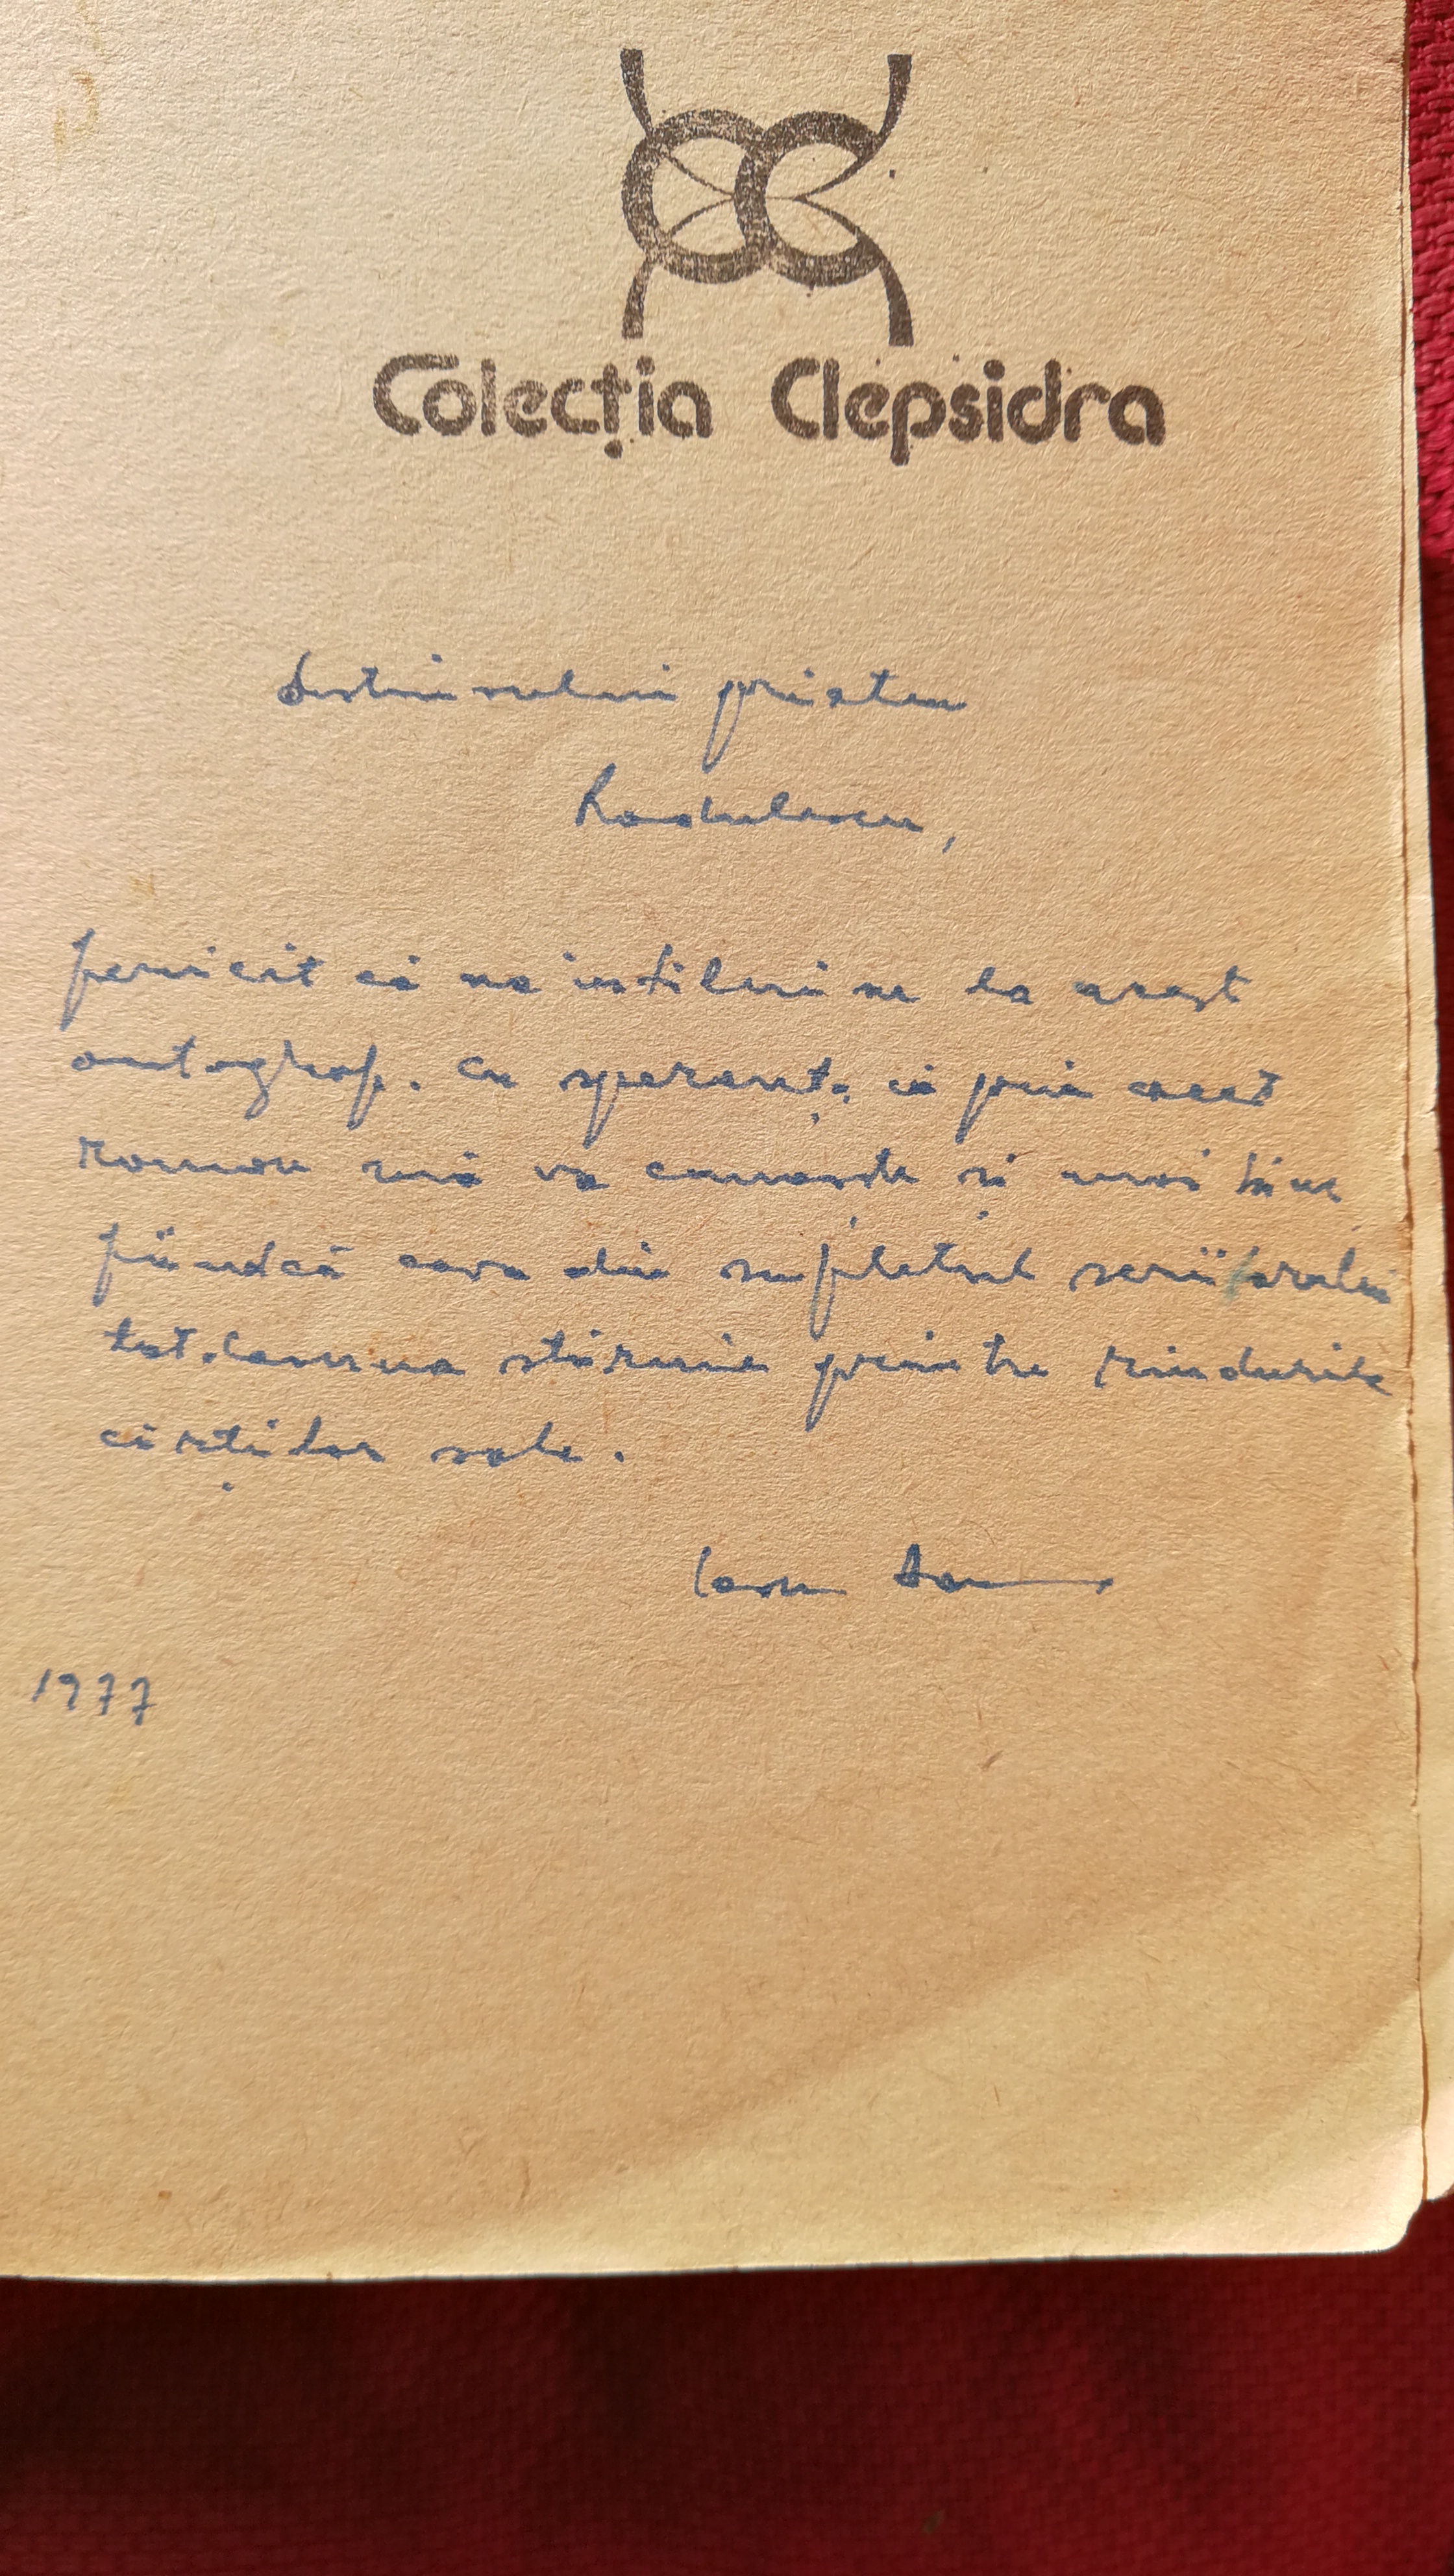 Colecția Clepsidra
distinsului prieten
Radulescu,
fericit că la acest
autograf. Cu speranța că prin acest
roman mă va cunoaște și mai bine
fiindcă ceva din sufletul scriitorului
totdeauna stăruie printre rîndurile
cărților sale.
1977